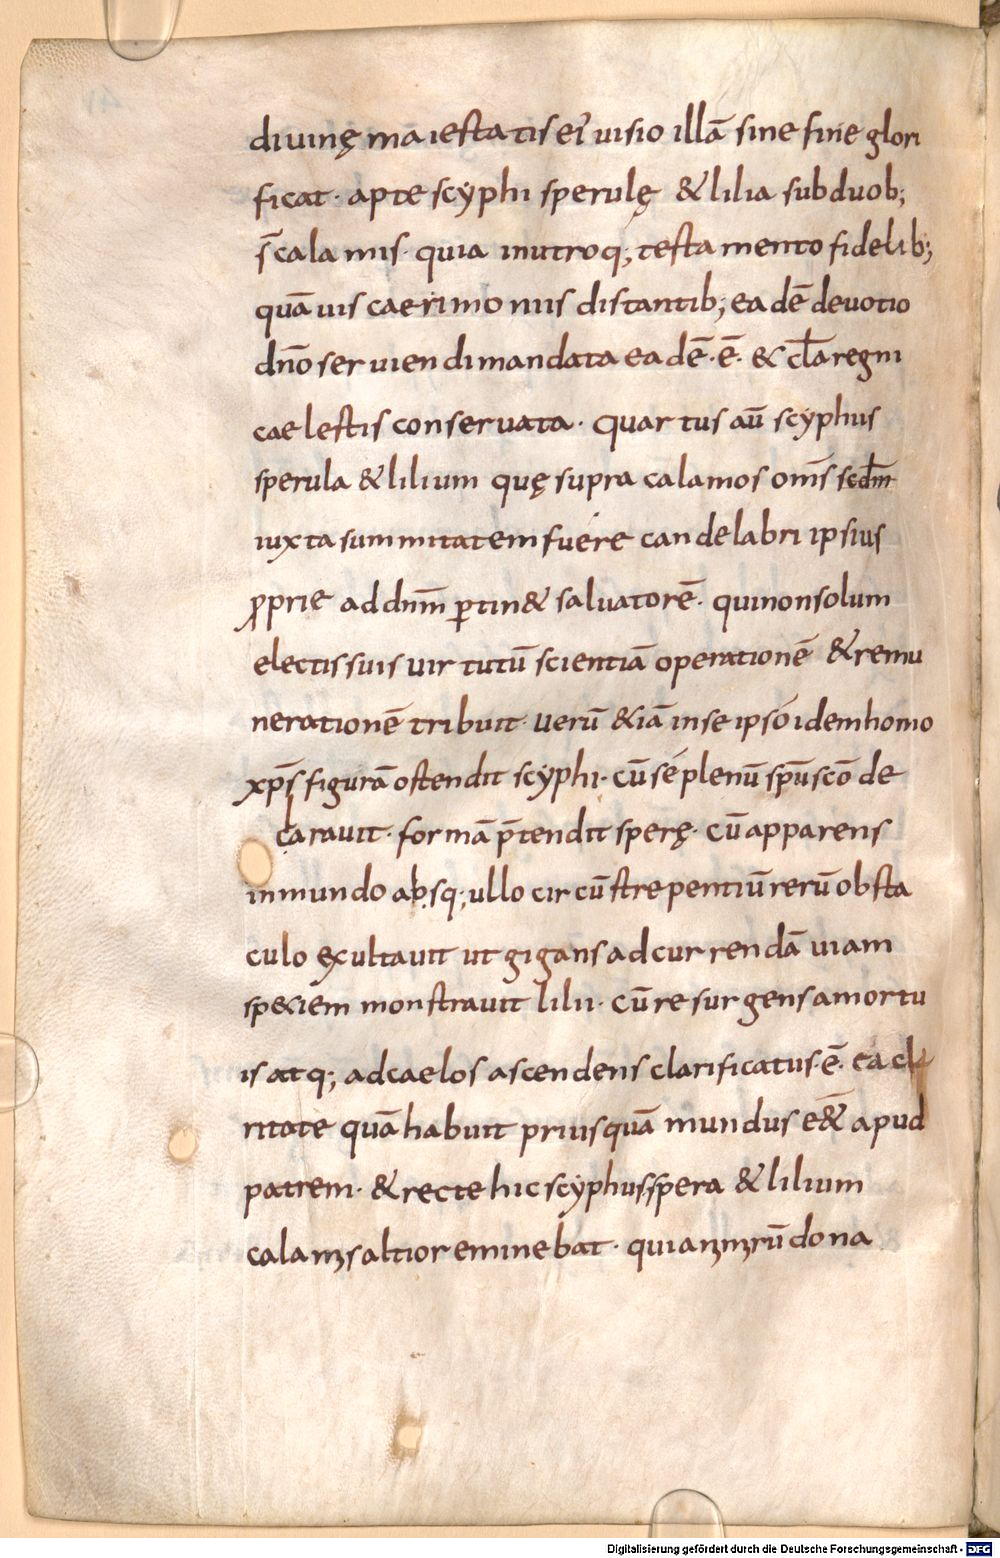 diuinę maiestatis ei᷒ uisio illā sine fine glori
ficat· apte scẏphi sperulę & lilia sub duob;
s̄ calamis· quia in utroq; testamento fidelib;
quāuis caerimoniis distantib; eadē deuotio
dn̄o seruiendi mandata eadē·ē· & cl̄a regni
caelestis conseruata· quartus aū scẏphus
sperula & lilium quę supra calamos om̄s scdm̄
iuxta summitatem fuere candelabri ipsius
ꝓprie ad dn̄m ꝑtin& saluatorē· qui non solum
electis suis uirtutū scientiā operationē & remu
nerationē tribuit· uerū & iā in se ipso idem homo
xp̄s figurā ostendit scẏphi· cū se plenū sp̄u sc̄o de
carauit· formā p̄tendit sperę· cū apparens
in mundo absq; ullo circūstrepentiū rerū obsta
culo exultauit ut gigans ad currendā uiam
speciem monstrauit lilii· cū resurgens a mortu
is atq; ad caelos ascendens clarificatus·ē· ea cla
ritate quā habuit priusquā mundus e&̄ apud
patrem· & recte hic scẏphus spera & lilium
calamis altior eminebat· quia nrm̄rū dona
Digitalisierung gefördert durch die Deutsche Forschungsgemeinschaft - DFG